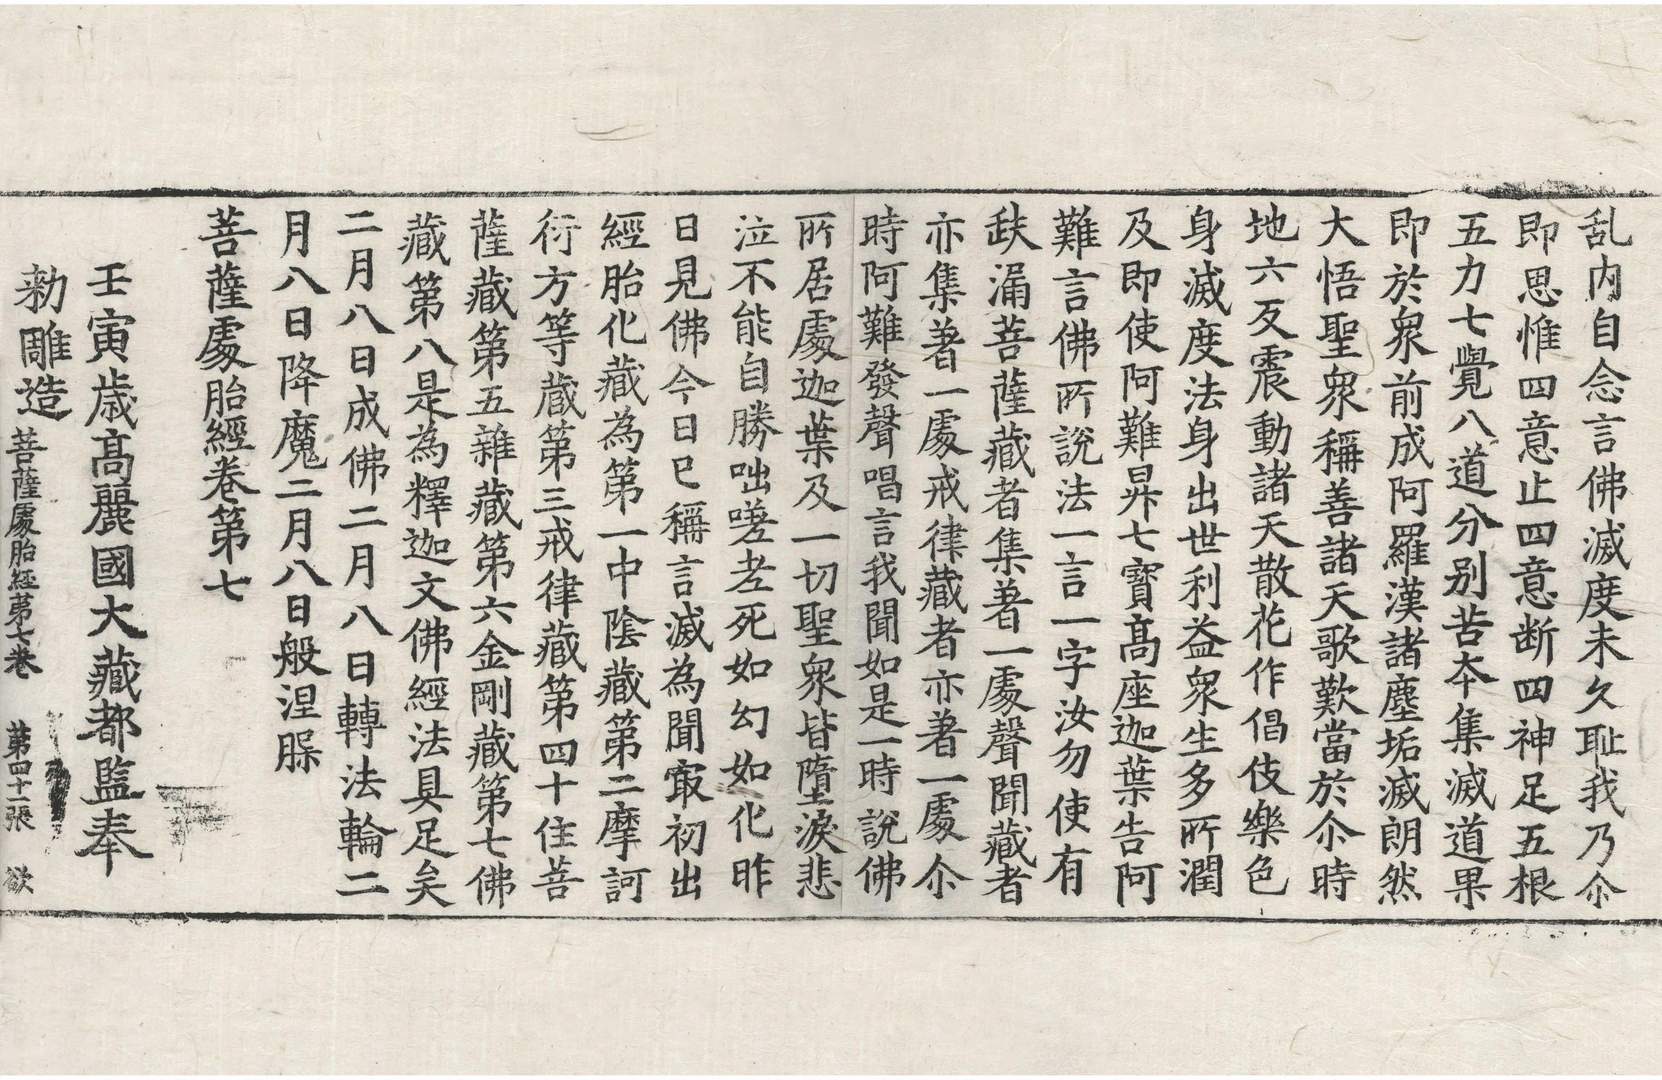 乱内自念言佛滅度未久耻我乃尒
即思惟四意止四意断四神足五根
五力七覺八道分别苦夲集滅道果
即於衆前成阿羅漢諸塵垢滅朗然
大悟聖衆稱善諸天歌歎當於尒時
地六反震動諸天散花作倡伎樂色
身滅度法身出世利益衆生多所潤
及即使阿難昇七寳髙座迦葉告阿
難言佛所說法一言一字汝勿使有
缺漏菩薩藏者集著一處聲聞藏者
亦集著一處戒律藏者亦著一處尒
時阿難發聲唱言我聞如是一時說佛
所居處迦葉及一切聖衆皆墮淚悲
泣不能自勝咄嗟老死如幻如化昨
日見佛今日已稱言滅為聞㝡初出
經胎化藏為第一中陰藏第二摩訶
衍方等藏第三戒律藏第四十住菩
薩藏第五雜藏第六金剛藏第七佛
藏第八是為釋迦文佛經法具足矣
二月八日成佛二月八日轉法輪二
月八日降魔二月八日般涅槃
菩薩處胎經卷第七
壬寅歳髙麗國大藏都監奉
勑雕造
菩薩處胎經第七卷 第四十一張 欲